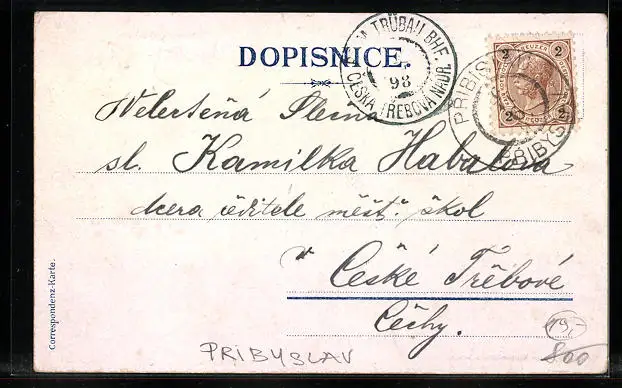 DOPISNICE.
TRÜBAU BHF.
98
ČESKÁ TŘEBOVÁ NÁDR.
2 KREUZER 2
2 2
PŘIBYS
Velectěná Slečna
sl. Kamilka Habalova
dcera ředitele měšť. škol
v České Třebové
Čechy.
Correspondenz-Karte.
PRIBYSLAV
19,-
800